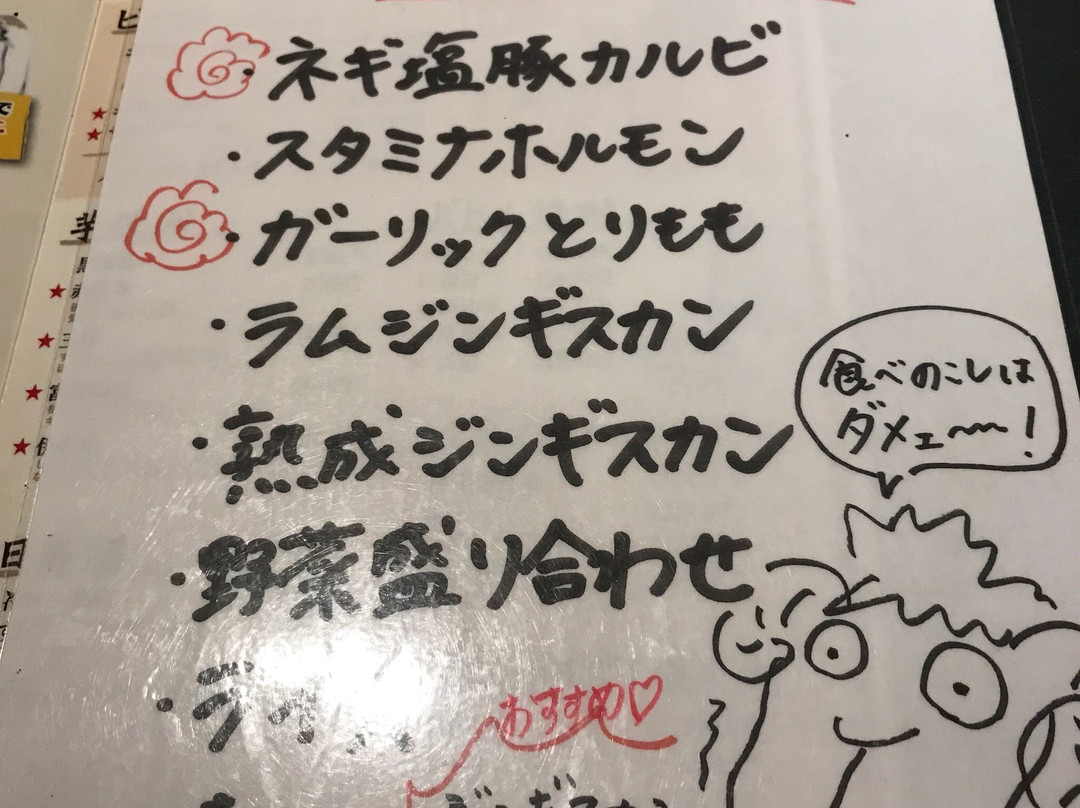 ・ネギ塩豚カルビ
・スタミナホルモン
・ガーリックとりもも
・ラムジンギスカン
・熟成ジンギスカン
・野菜盛り合わせ
食べのこしは
ダメェ〜〜!
おすすめ♡
ジンギスカン